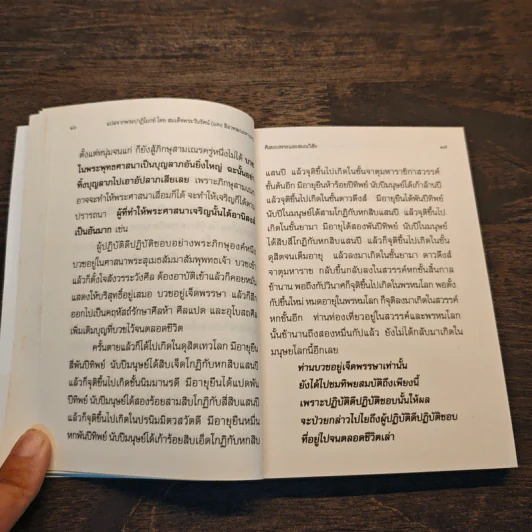 ๑๖
แปลจากพระบาฏิโมกข์ โดย สมเด็จพระวันรัตน์
ตั้งแต่หนุ่มจนแก่ ก็ยังสู้ภิกษุสามเณรครู่หนึ่งไม่ได้
ในพระพุทธศาสนาเป็นบุญลาภอันยิ่งใหญ่ ฉะนั้นอย่า
ทิ้งบุญลาภไปเอาอัปลาภเสียเลย เพราะภิกษุสามเณร
อาจจะทำให้พระศาสนาเสื่อมก็ได้ จะทำให้เจริญก็ได้ตาม
ปรารถนา ผู้ที่ทำให้พระศาสนาเจริญนั้นได้อานิสงส์
เป็นอันมาก เช่น
ผู้ปฏิบัติดีปฏิบัติชอบอย่างพระภิกษุองค์หนึ่ง
บวชอยู่ในศาสนาพระสุเมธสัมมาสัมพุทธเจ้า บวชเข้า
แล้วก็ตั้งใจสังวรระวังศีล ต้องอาบัติเข้าแล้วก็คอยหมั่น
แสดงให้บริสุทธิ์อยู่เสมอ บวชอยู่เจ็ดพรรษา แล้วก็สึก
ออกไปเป็นคฤหัสถ์รักษาศีลห้า ศีลแปด และอุโบสถศีล
เพิ่มเติมบุญที่บวชไว้จนตลอดชีวิต
ครั้นตายแล้วก็ได้ไปเกิดในดุสิตเทวโลก มีอายุยืน
สี่พันปีทิพย์ นับปีมนุษย์ได้สิบเจ็ดโกฏิกับหกสิบแสนปี
แล้วก็จุติขึ้นไปเกิดชั้นนิมมานรดี มีอายุยืนได้แปดพัน
ปีทิพย์ นับปีมนุษย์ได้สองร้อยสามสิบโกฏิกับสี่สิบแสนปี
แล้วก็จุติขึ้นไปเกิดในปรนิมมิตวสวัตดี มีอายุยืนหมื่น
หกพันปีทิพย์ นับปีมนุษย์ได้เก้าร้อยสิบเอ็ดโกฏิกับหกสิบ
ศีลของพระและสมณวิสัย
๑๗
แสนปี แล้วจุติขึ้นไปเกิดในชั้นจาตุมหาราชิกาสวรรค์
ชั้นต้นอีก มีอายุยืนห้าร้อยปีทิพย์ นับปีมนุษย์ได้เก้าล้านปี
แล้วจุติขึ้นไปเกิดในชั้นดาวดึงส์ มีอายุยืนได้พันปีทิพย์
นับปีในมนุษย์ได้สามโกฏิกับหกสิบแสนปี แล้วจุติขึ้นไป
เกิดในชั้นยามา มีอายุได้สองพันปีทิพย์ นับปีในมนุษย์
ได้สิบสี่โกฏิกับสี่สิบแสนปี แล้วก็จุติขึ้นไปเกิดในชั้น
ดุสิตจนเต็มอายุ แล้วลงมาเกิดในชั้นยามา ดาวดึงส์
จาตุมหาราช กลับขึ้นกลับลงในสวรรค์หกชั้นสิ้นกาล
ช้านาน พอถึงกัปวินาศก็จุติขึ้นไปเกิดในพรหมโลก พอตั้ง
กัปขึ้นใหม่ หมดอายุในพรหมโลก ก็จุติลงมาเกิดในสวรรค์
หกชั้นอีก ท่านท่องเที่ยวอยู่ในสวรรค์และพรหมโลก
นั้นช้านานถึงสองหมื่นกัปแล้ว ยังไม่ได้กลับมาเกิดใน
มนุษยโลกนี้อีกเลย
ท่านบวชอยู่เจ็ดพรรษาเท่านั้น
ยังได้ไปชมทิพยสมบัติถึงเพียงนี้
เพราะปฏิบัติดีปฏิบัติชอบนั้นให้ผล
จะป่วยกล่าวไปไยถึงผู้ปฏิบัติดีปฏิบัติชอบ
ที่อยู่ไปจนตลอดชีวิตเล่า